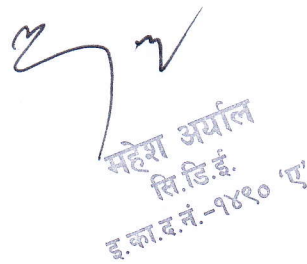 महेश अर्याल
सि.डि.ई.
इ.का.द.नं.-१४९० 'ए'